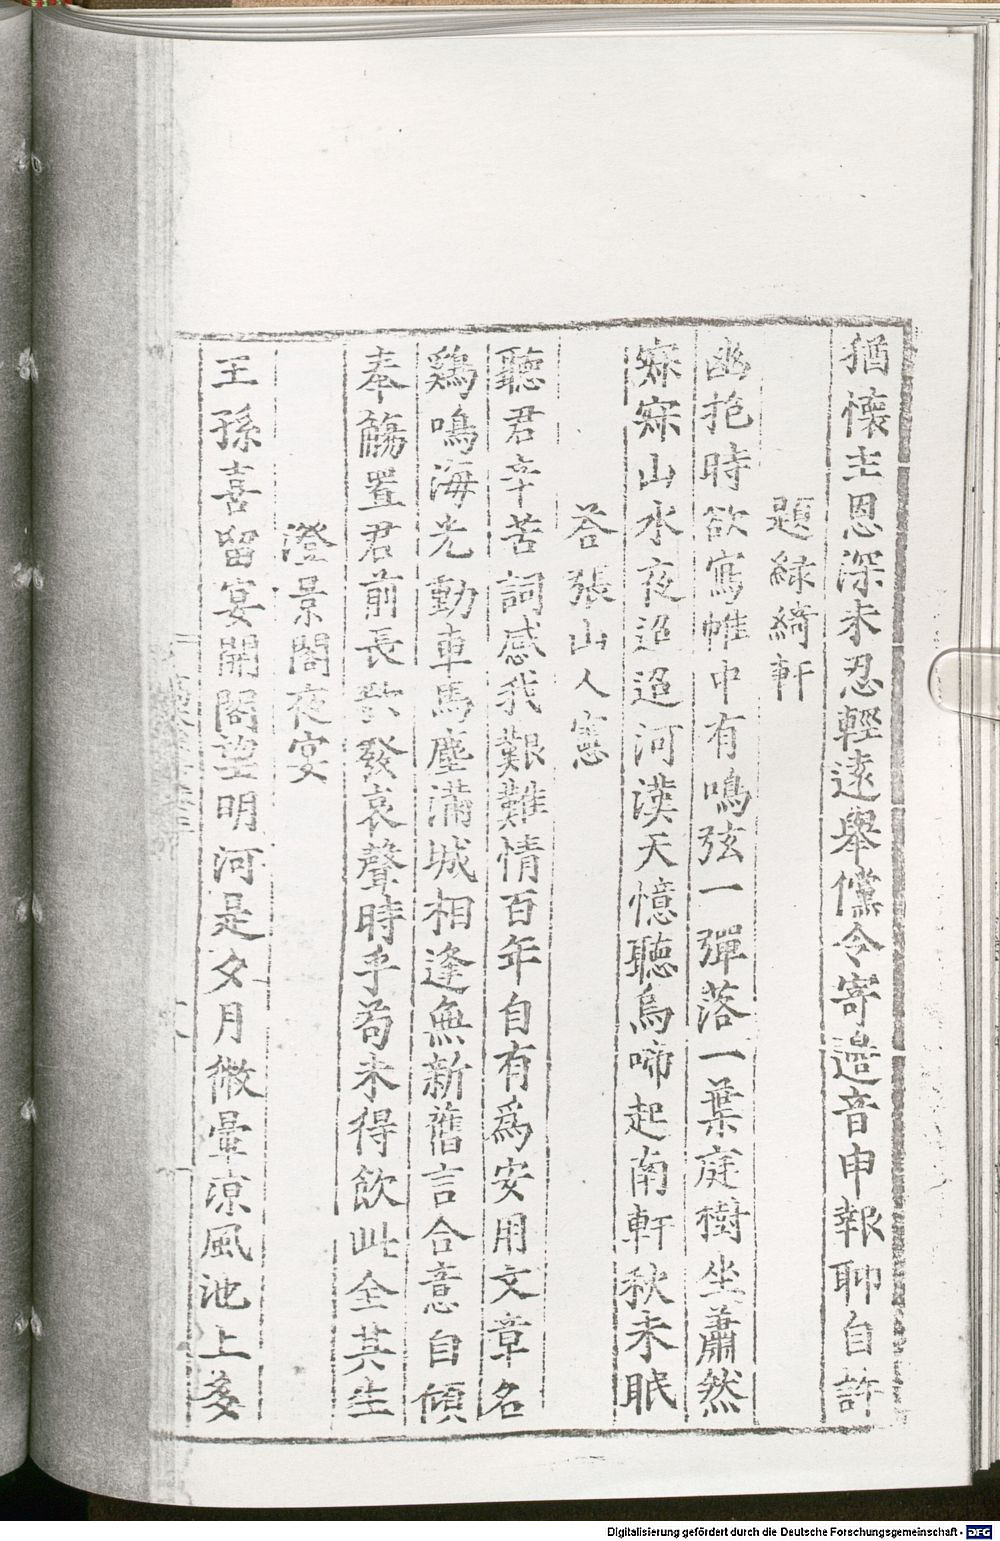 猶懷主恩深未忍輕遠舉儻令寄遺音申報聊自許
題緑綺軒
幽抱時欲寫帷中有鳴弦一彈落一葉庭樹坐蕭然
寂寂山水夜迢迢河漢天憶聽烏啼起南軒秋未眠
答張山人憲
聽君辛苦詞感我艱難情百年自有爲安用文章名
鷄鳴海光動車馬塵滿城相逢無新舊言合意自傾
奉觴置君前長歌發哀聲時乎苟未得飲此全其生
澄景閣夜宴
王孫喜留宴開閣望明河是夕月微暈凉風池上多
Digitalisierung gefördert durch die Deutsche Forschungsgemeinschaft - DFG